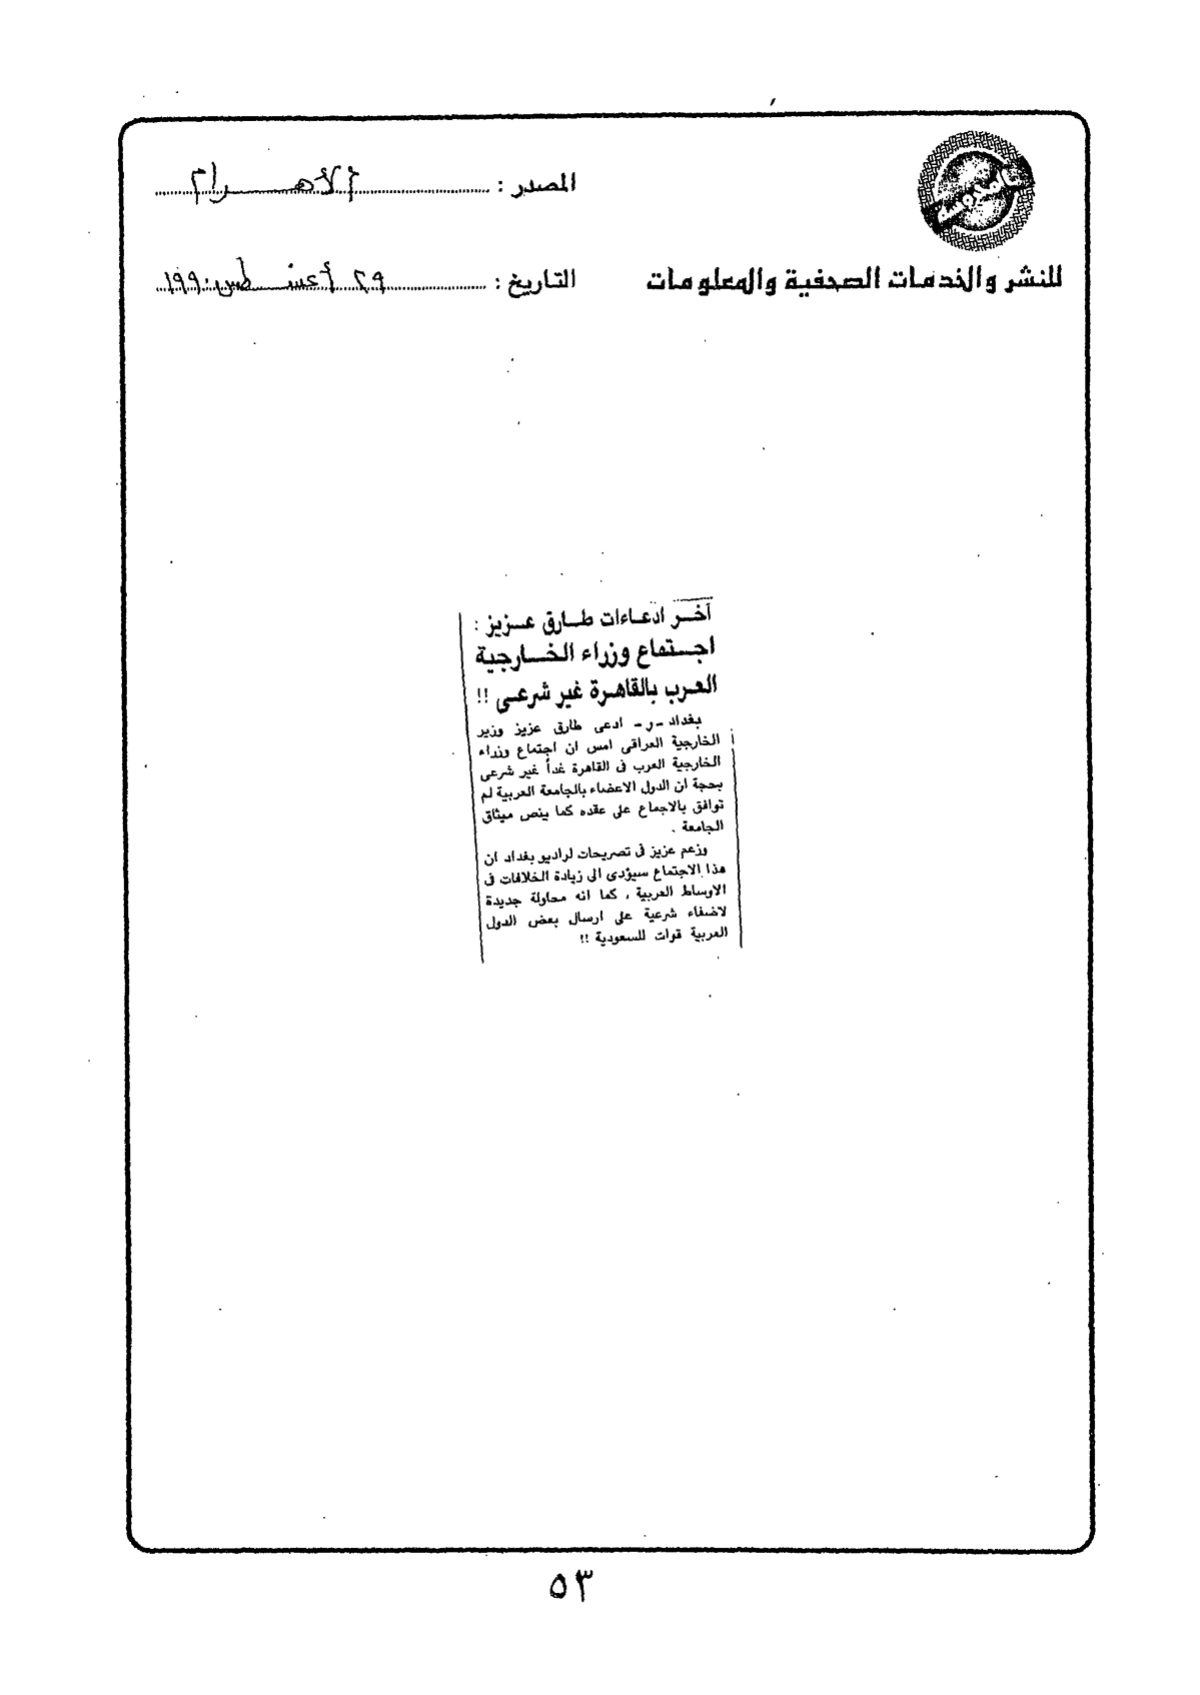 المصدر : الأهرام
للنشر والخدمات الصحفية والمعلومات
التاريخ : ٢٩ أغسطس ١٩٩٠
آخر ادعاءات طارق عزيز :
اجتماع وزراء الخارجية
العرب بالقاهرة غير شرعى !!
بغداد - ر - ادعى طارق عزيز وزير
الخارجية العراقى امس ان اجتماع وزراء
الخارجية العرب فى القاهرة غداً غير شرعى
بحجة ان الدول الاعضاء بالجامعة العربية لم
توافق بالاجماع على عقده كما ينص ميثاق
الجامعة .
وزعم عزيز فى تصريحات لراديو بغداد ان
هذا الاجتماع سيؤدى الى زيادة الخلافات فى
الاوساط العربية ، كما انه محاولة جديدة
لاضفاء شرعية على ارسال بعض الدول
العربية قوات للسعودية !!
٥٣